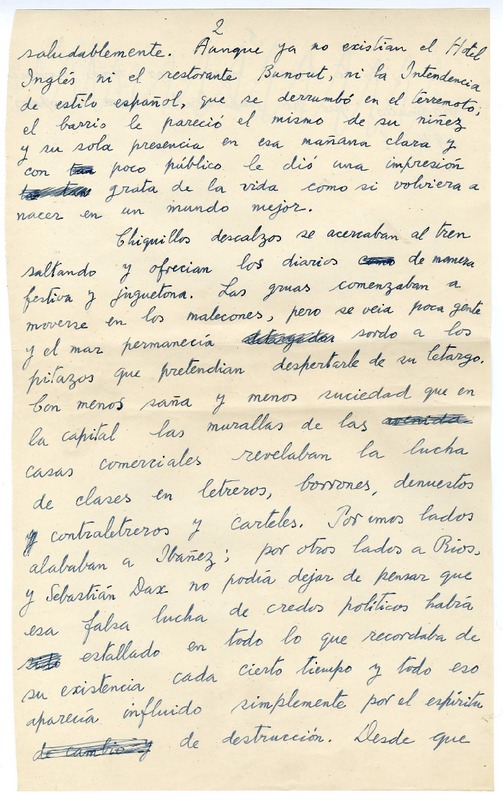 2
saludablemente. Aunque ya no existian el Hotel
Inglés ni el restorante Bunout, ni la Intendencia
de estilo español, que se derrumbó en el terremoto;
el barrio le pareció el mismo de su niñez
y su sola presencia en esa mañana clara y
con poco público le dió una impresión
grata de la vida como si volviera a
nacer en un mundo mejor.
Chiquillos descalzos se acercaban al tren
saltando y ofrecian los diarios como de manera
festiva y juguetona. Las gruas comenzaban a
moverse en los malecones, pero se veia poca gente
y el mar permanecía aletargado sordo a los
pitazos que pretendian despertarle de su letargo.
Con menos saña y menos suciedad que en
la capital las murallas de las avenida
casas comerciales revelaban la lucha
de clases en letreros, borrones, denuestos
y contraletreros y carteles. Por unos lados
alababan a Ibáñez; por otros lados a Rios.
y Sebastián Dax no podía dejar de pensar que
esa falsa lucha de credos politicos habría
estallado en todo lo que recordaba de
su existencia cada cierto tiempo y todo eso
aparecía influido simplemente por el espíritu
de cambio y de destrucción. Desde que